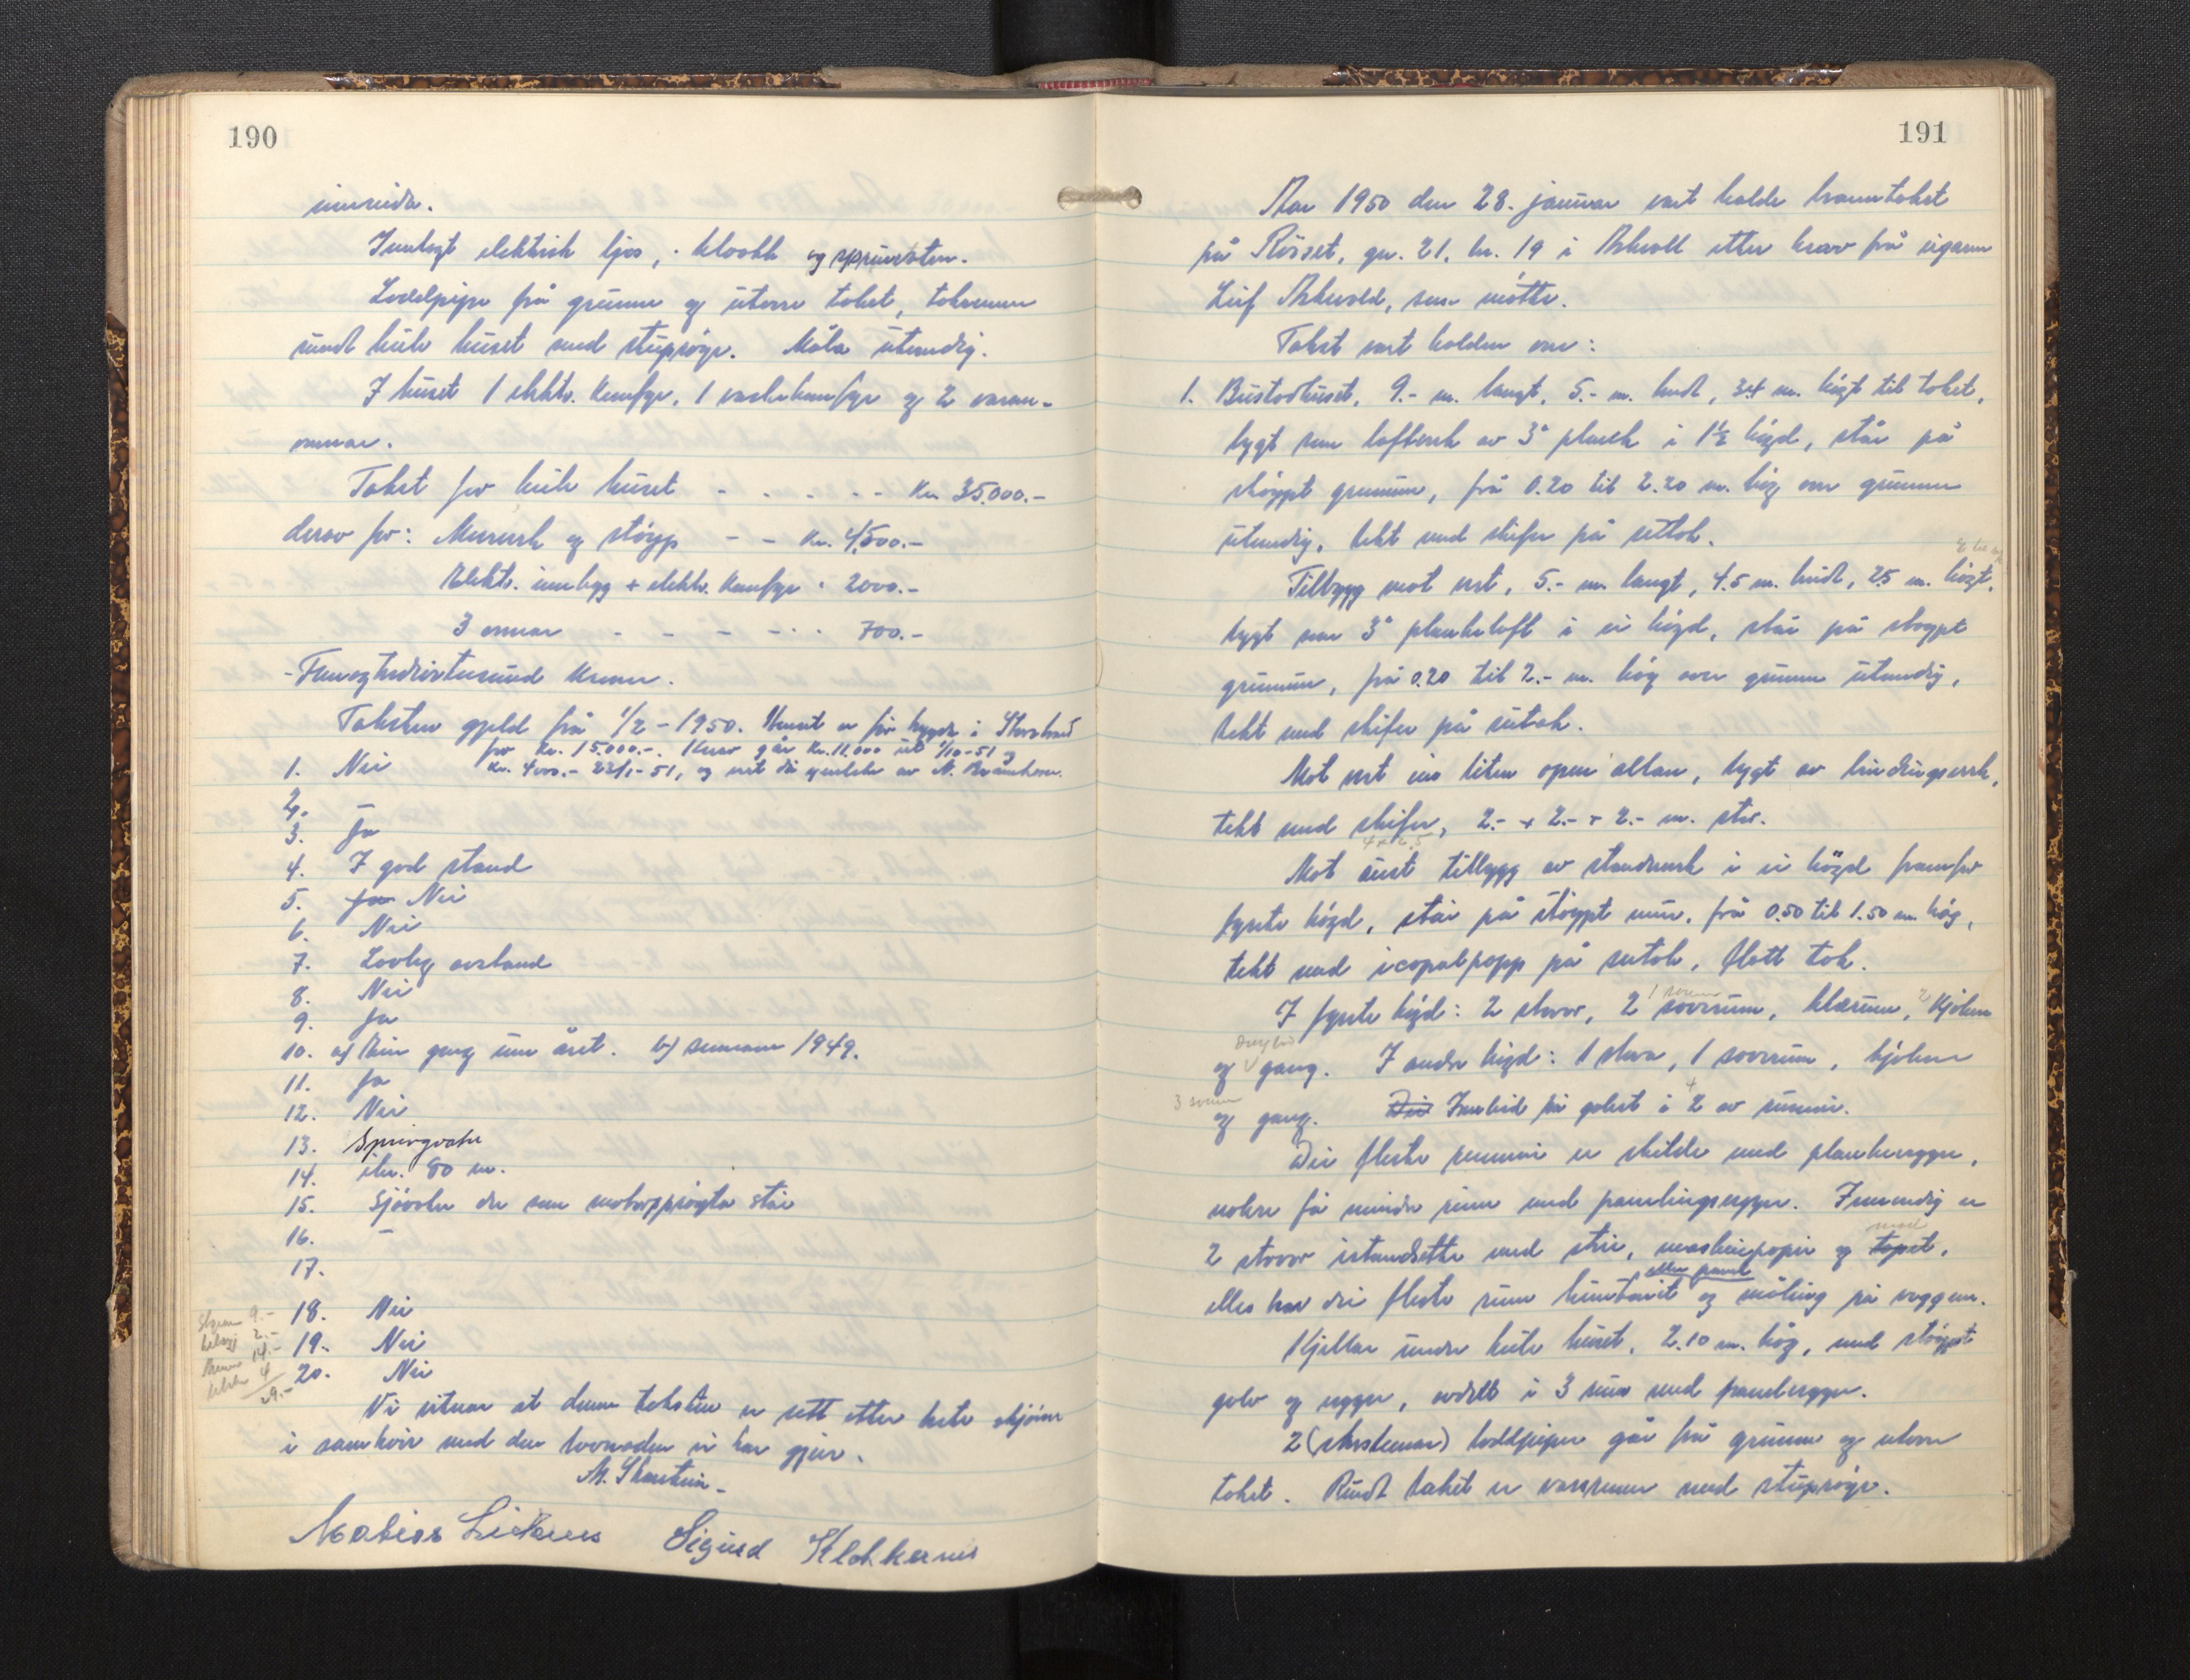 190
innsida.
Innlagt elektrisk ljos, kloakk og
Loddpipe frå grunnen og utover taket, takrenner
rundt heile huset med stuprøyr. Måla utvendig.
I huset 1 elektr. komfyr, 1 vaskekomfyr og 2
omnar.
Takst for heile huset - - - - - kr. 35.000.-
derav for: Murverk og støyp - - kr. 4500.-
Elektr. innlegg + elektr. komfyr " 2000.-
3 omnar - - - - - 700.-
- Femogtredivetusund kroner.
Taksten gjeld frå 1/2 - 1950. Huset er før trygda i Storebrand
for kr. 15.000.-. Herav går kr. 11.000 ut 1/10-51 og
kr. 4000.- 23/1-51, og vert då av
1. Nei
2. -
3. Ja
4. I god stand
5. Ja Nei
6. Nei
7. Lovleg avstand
8. Nei
9. Ja
10. a) Ein gong um året. b) sumaren 1949.
11. Ja
12. Nei
13. Springvatn
14. ikr. 80 m.
15. Sjøbu der som motorsprøyta står
16. -
17.
Skjema 9.-
tillegg 2.-
14.-
4
29.-
18. Nei
19. Nei
20. Nei
Vi vitnar at denne taksten er sett etter beste skjønn
i samhøve med den lovnaden vi har gjeve.
M.
Mobias Sigurd Klokkernes
191
Aar 1950 den 28. januar vart halde branntakst
på Røsset, gn. 21, br. 19 i Askvoll etter krav frå eigaren
Leif Askvold, som møtte.
Takst vart halden over:
1. Bustadhuset, 9.- m. langt, 5.- m. breidt, 3.4 m. høgt til taket,
bygt som laftverk av 3" plank i 1½ høgd, står på
støypt grunnmur, frå 0.20 til 2.20 m. høg over grunnen
utvendig, tekt med skifer på sutak.
Tilbygg mot vest, 5.- m. langt, 4.5 m. breidt, 2.5 m. høgt,
bygt som 3" plankelaft i ei høgd, står på støypt
grunnmur, frå 0.20 til 2.- m. høg over grunnen utvendig,
tekt med skifer på sutak.
Mot vest ein liten open altan, bygt av bindingsverk,
tekt med skifer, 2.- + 2.- + 2.- m. stor.
4 x 2.5
Mot aust tilbygg av standverk i ei høgd framfor
fyrste høgd, står på støypt mur, frå 0.50 til 1.50 m. høg,
tekt med icopalpapp på sutak, flatt tak.
I fyrste høgd: 2 stover, 2 soverum, klærum, 2 kjøken
og gang. I andre høgd: 1 stova, 1 soverum, kjøken
og gang. Dei Innbud på golvet i 2 av rummi.
4
Dei fleste rummi er skilde med plankevegger,
nokre få mindre rum med panelingsvegger. Innvendig er
2 stover istandsette med strie, maskinpapir og tapet,
elles har dei fleste rum huntonit og måling på veggene.
eller panel
Kjellar under heile huset, 2.10 m. høg, med støypt
golv og vegger, avdelt i 3 rum med panelvegger.
2 (skorsteinar) loddpiper går frå grunnen og utover
taket. Rundt taket er vassrenner med stuprøyr.